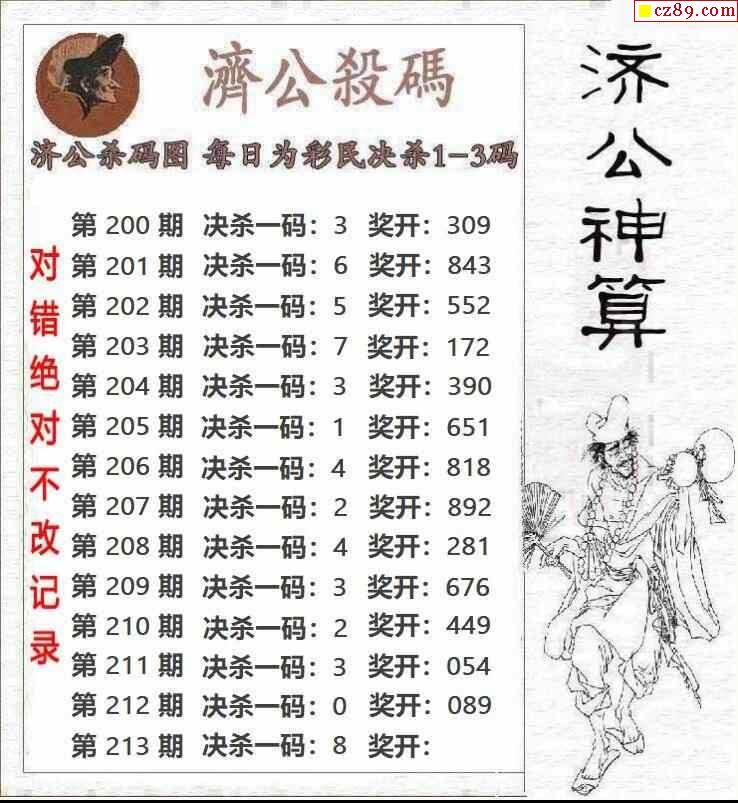 cz89.com
濟公殺碼
济公杀码图 每日为彩民决杀1-3码
第 200 期 决杀一码：3 奖开：309
第 201 期 决杀一码：6 奖开：843
第 202 期 决杀一码：5 奖开：552
第 203 期 决杀一码：7 奖开：172
第 204 期 决杀一码：3 奖开：390
第 205 期 决杀一码：1 奖开：651
第 206 期 决杀一码：4 奖开：818
第 207 期 决杀一码：2 奖开：892
第 208 期 决杀一码：4 奖开：281
第 209 期 决杀一码：3 奖开：676
第 210 期 决杀一码：2 奖开：449
第 211 期 决杀一码：3 奖开：054
第 212 期 决杀一码：0 奖开：089
第 213 期 决杀一码：8 奖开：
对错绝对不改记录
济公神算